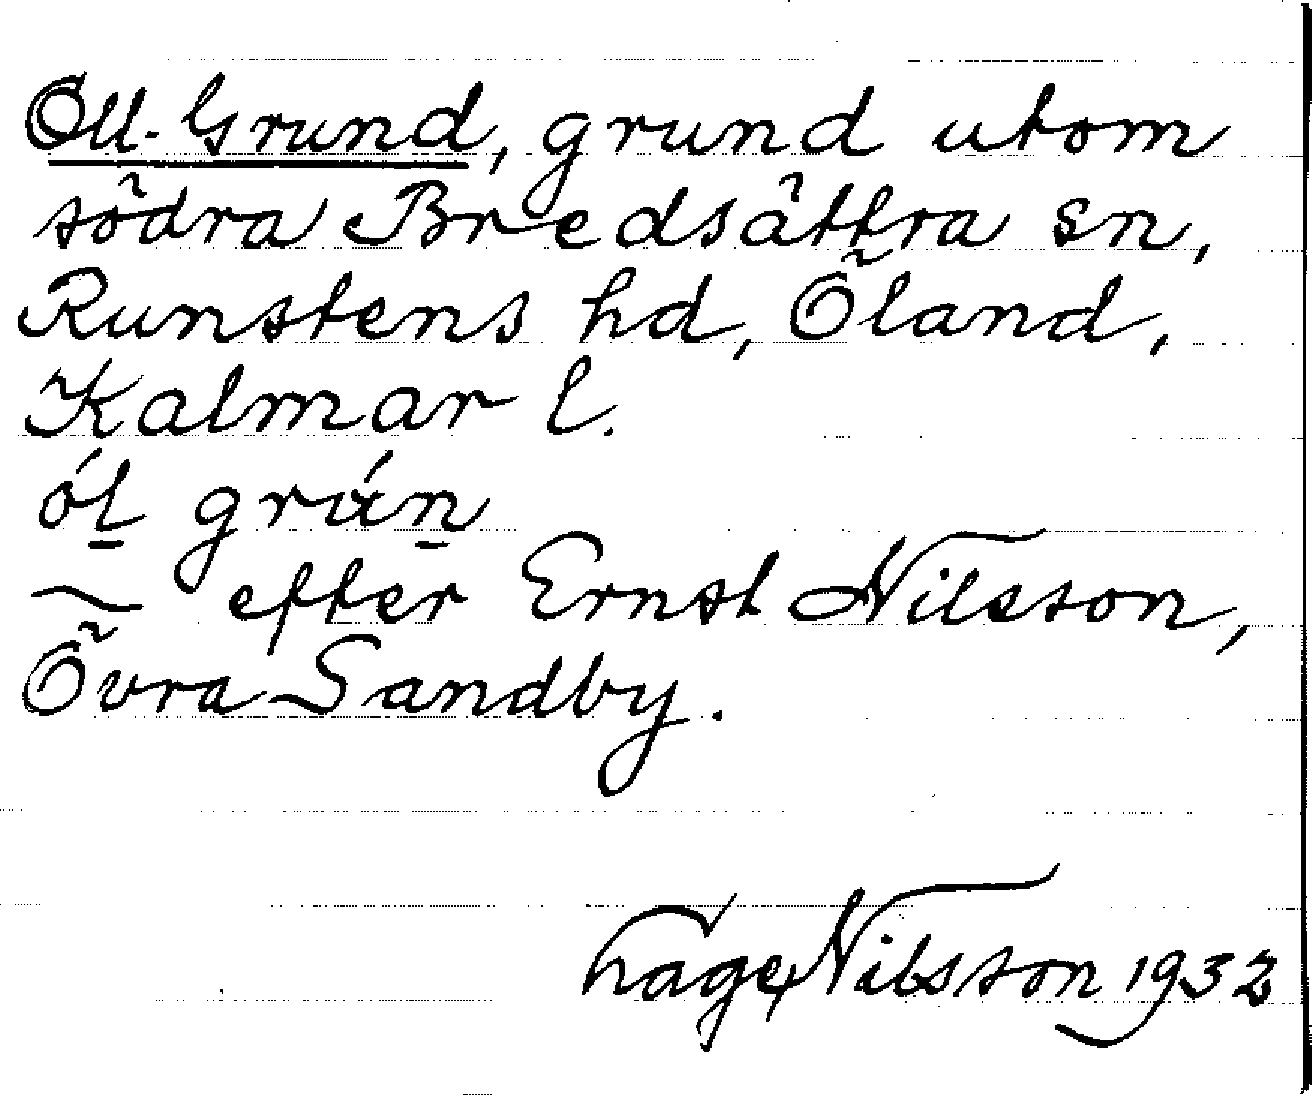 Oll-Grund, grund utom
södra Bredsättra sn,
Runstens hd, Öland,
Kalmar l.
ól grún
~ efter Ernst Nilsson,
Övra Sandby.
Hage Nilsson 1932